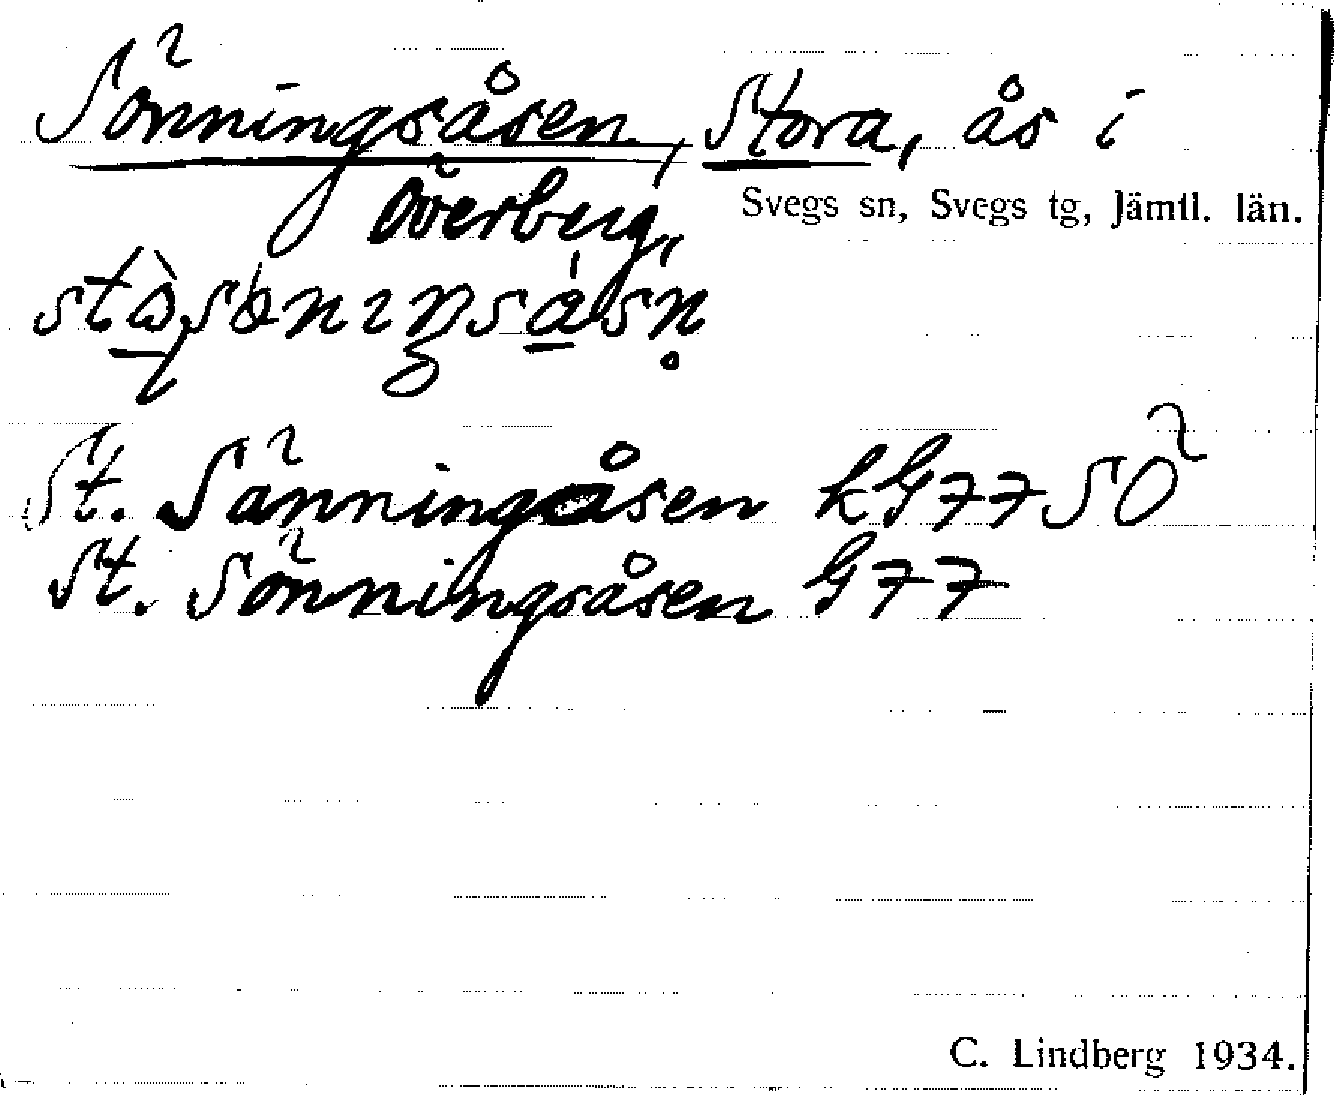 Sönningsåsen, Stora, ås i
Överberg,
Svegs sn, Svegs tg, Jämtl. län.
St. Sänningåsen kG77SÖ
St. Sönningsåsen G77
C. Lindberg 1934.